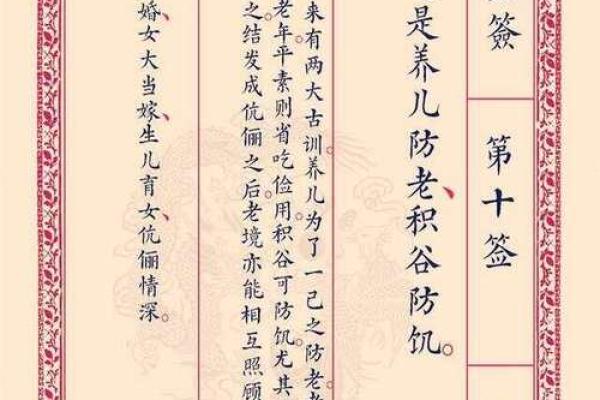 簽
第十签
是养儿防老、积谷防饥。
来有两大古训。养儿为了一己之防老
老年平素则省吃俭用。积谷可防饥。尤其
之结发成伉俪之后。老境亦能相互照顾
婚、女大当嫁、生儿育女、伉俪情深。